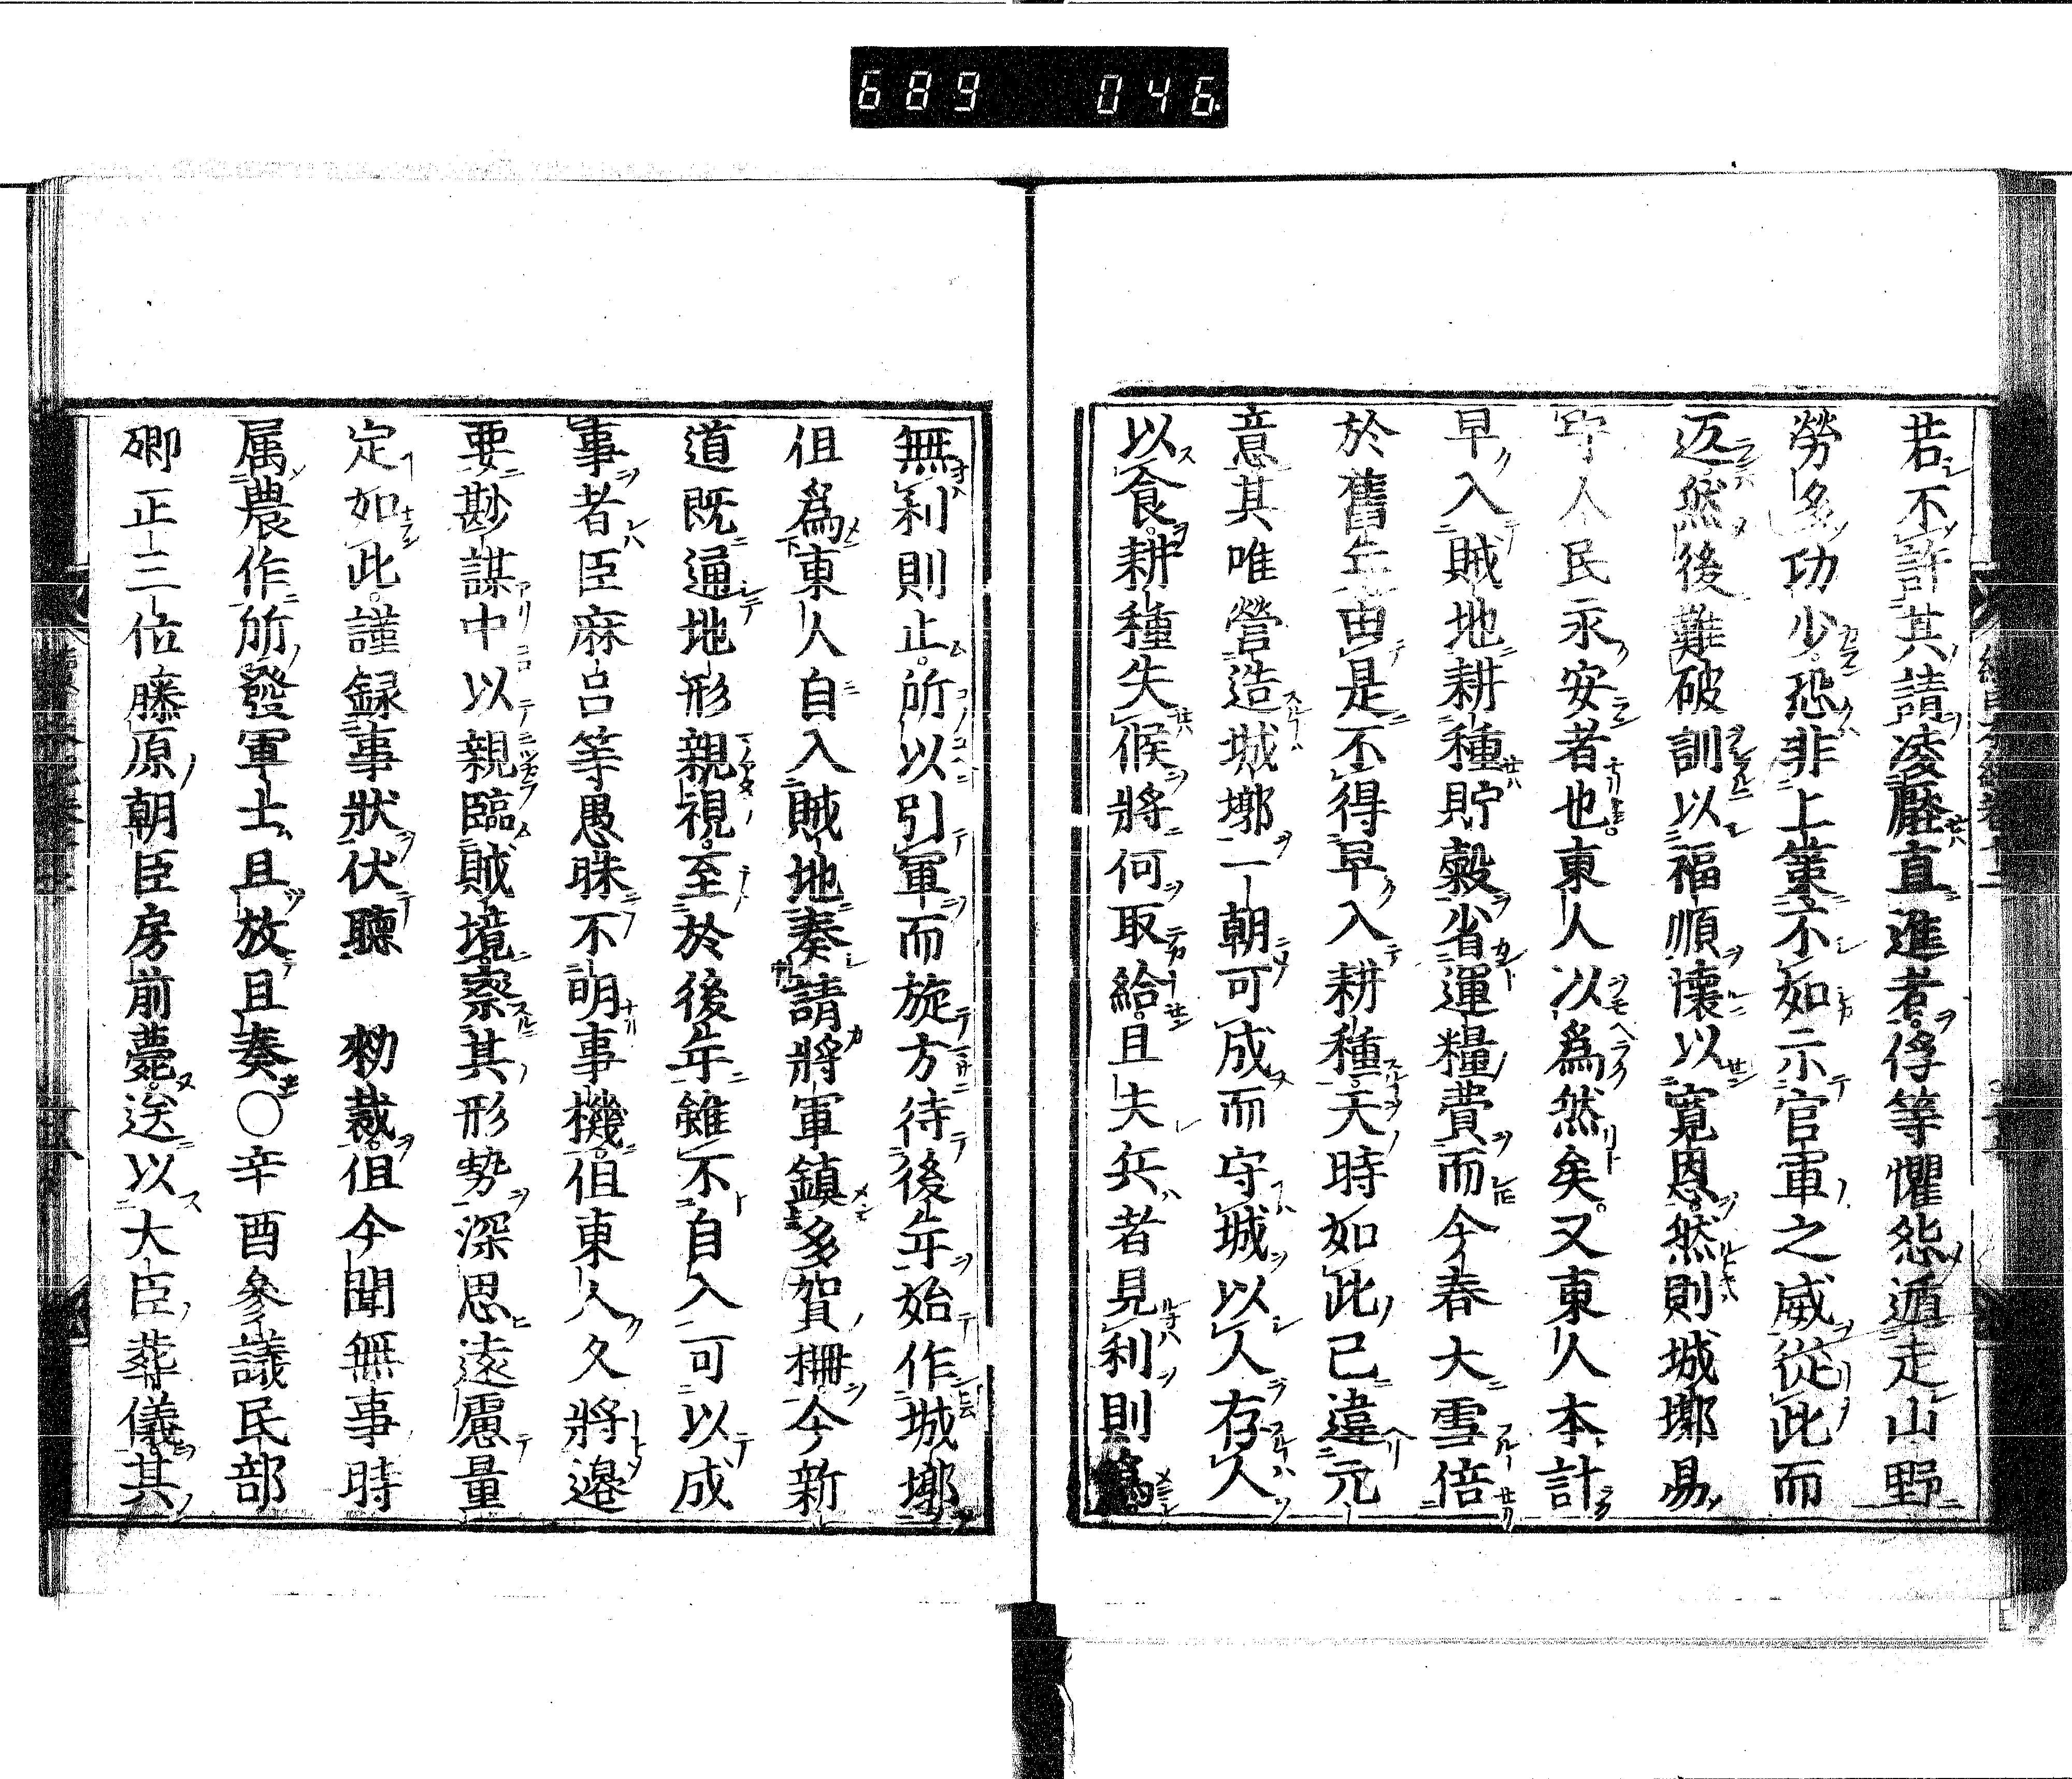 689 046.
若不許其請凌壓直進者俘等懼怨遁走山野
勞多功少恐非上策不如示官軍之威從此而
返然後難破訓以福順懐以寛恩然則城墎易
守人民永安者也東人以為然矣又東人本計
早入賊地耕種貯穀省運糧費而今春大雪倍
於舊年由是不得早入耕種天時如此已違元
意其唯營造城墎一朝可成而守城以人存人
以食耕種失候將何取給且夫兵者見利則為
無利則止所以引軍而旋方待後年始作城墎
但為東人自入賊地奏請將軍鎮多賀柵今新
道既通地形親視至於後年雖不自入可以成
事者臣麻呂等愚昧不明事機但東人久將邊
要尠謀中以親臨賊境察其形勢深思遠慮量
定如此謹録事狀伏聽 勅裁但今聞無事時
属農作所發軍士且放且奏○辛酉參議民部
卿正三位藤原朝臣房前薨送以大臣葬儀其